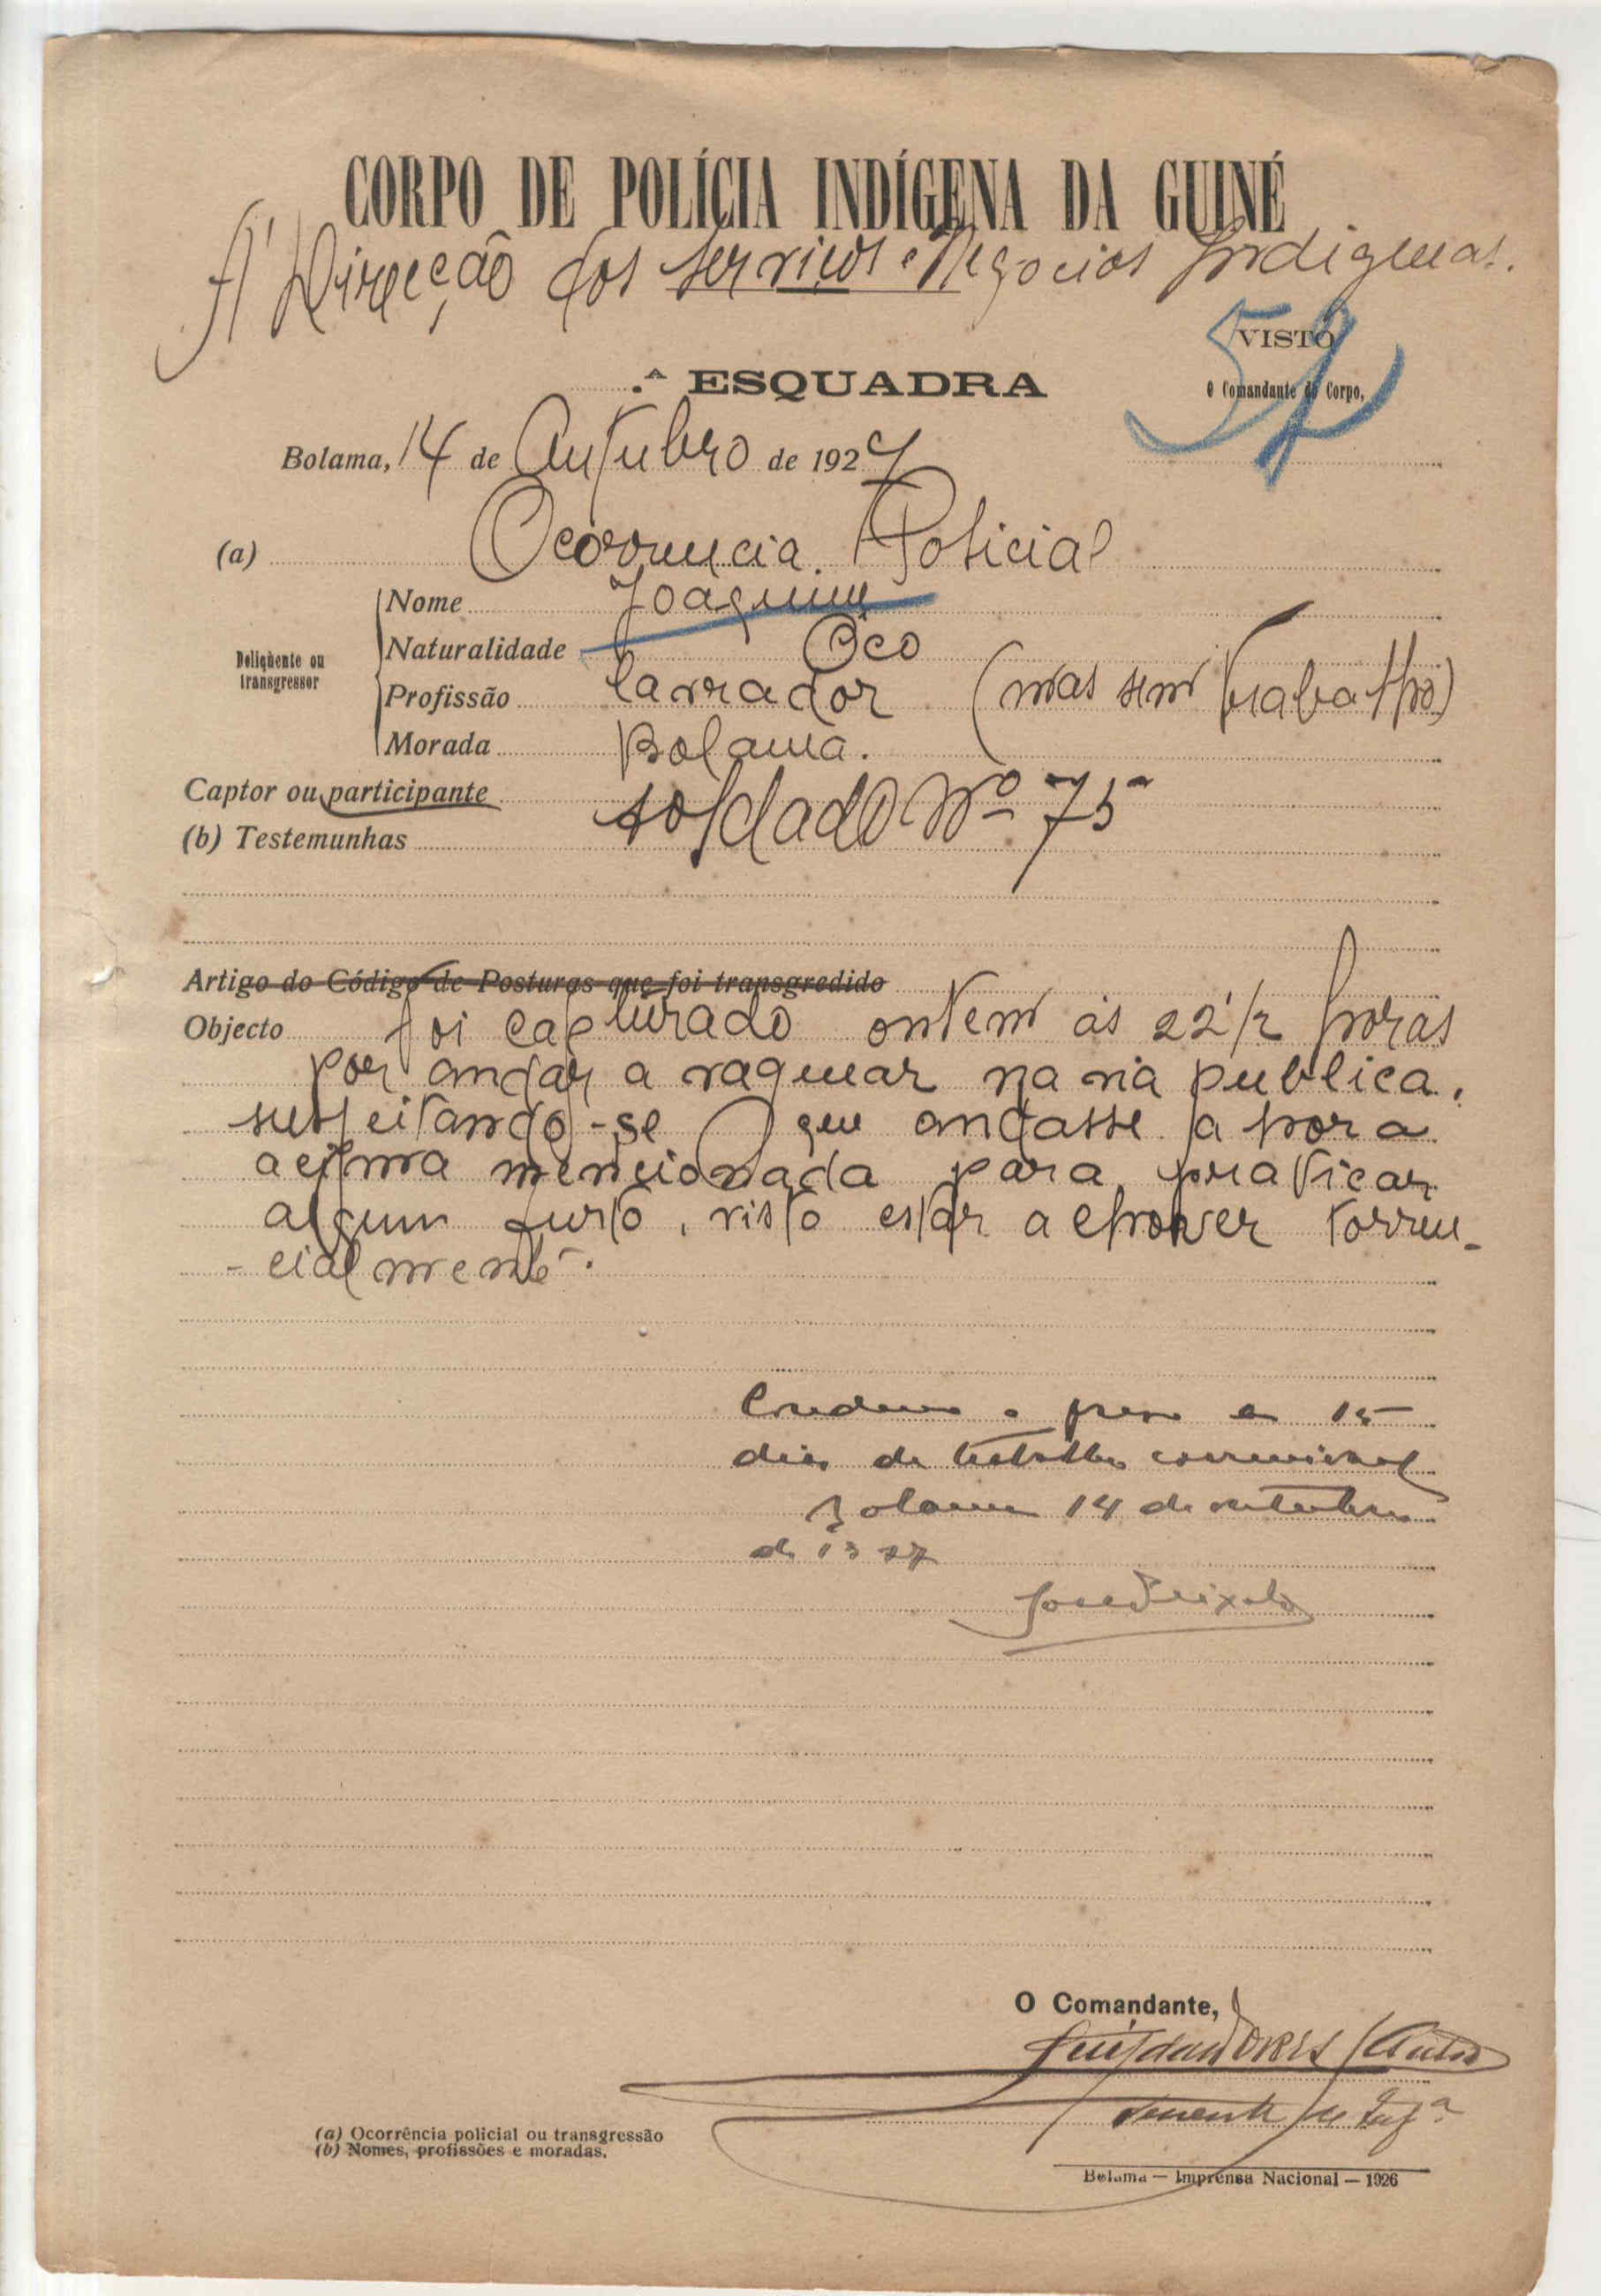 CORPO DE POLÍCIA INDÍGENA DA GUINÉ
A' Direcção dos serviços e Negocios Indigenas.
VISTO
O Comandante do Corpo,
.ª ESQUADRA
Bolama, 14 de Outubro de 1927
(a) Ocorrencia Policial
Delinqùente ou transgressor
Nome Joaquim
Naturalidade Oco
Profissão lavrador (mas sem trabalho)
Morada Bolama.
Captor ou participante soldado Nº 75
(b) Testemunhas
Artigo do Código de Posturas que foi transgredido
Objecto foi capturado ontem ás 22 1/2 horas
por andar a vaguear na via publica,
suspeitando-se que andasse a hora
acima mencionada para praticar
algum furto, visto estar a chover torren-
-cialmente.
Condeno o preso em 15
dias de trabalho correcional
Bolama 14 de outubro
de 1927
José Peixoto
O Comandante,
Tenente de Infª
(a) Ocorrência policial ou transgressão
(b) Nomes, profissões e moradas.
Bolama — Imprensa Nacional — 1926